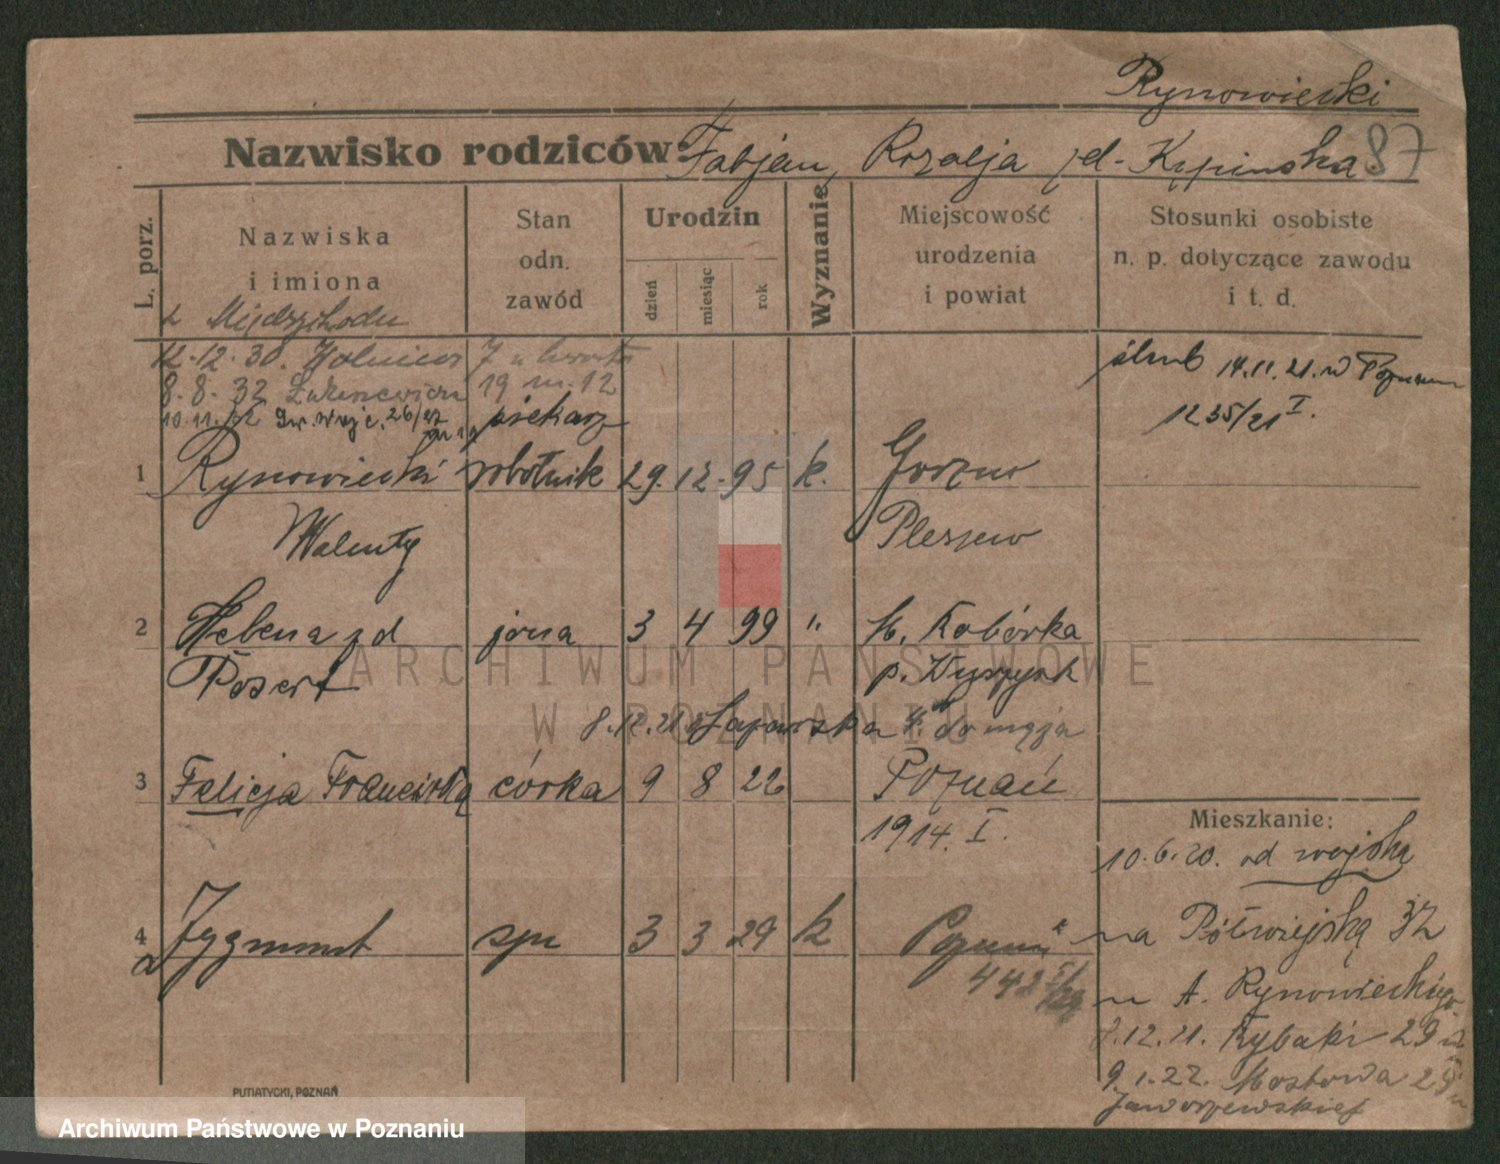 Rynowiecki
Nazwisko rodziców: Fabjan, Rozalja zd. Kępińska 87
L. porz.
Nazwiska i imiona
Stan odn. zawód
Urodzin
dzień
miesiąc
rok
Wyznanie
Miejscowość urodzenia i powiat
Stosunki osobiste n. p. dotyczące zawodu i t. d.
z Międzychodu
12.12.30.
8.8.32 19 m. 12
10.11.32 26/27
piekarz
ślub 14.11.21. w Poznaniu
1235/21 I.
1 Rynowiecki robotnik 29. 12. 95 k.
Walenty Pleszew
2 Helena zd żona 3 4 99 " Kobórka
p. Wyrzysk
8.12.21 do męża
3 Felicja Franciszka córka 9 8 22 Poznań
1914. I.
4 Zygmunt syn 3 3 29 k Poznań
442
Mieszkanie:
10.6.20. od wojska
na Półwiejską 32
u A. Rynowieckiego
8.12.21. Rybaki 29
9.1.22. Mostowa 29
PUTIATYCKI, POZNAŃ
ARCHIWUM PAŃSTWOWE
W POZNANIU
Archiwum Państwowe w Poznaniu